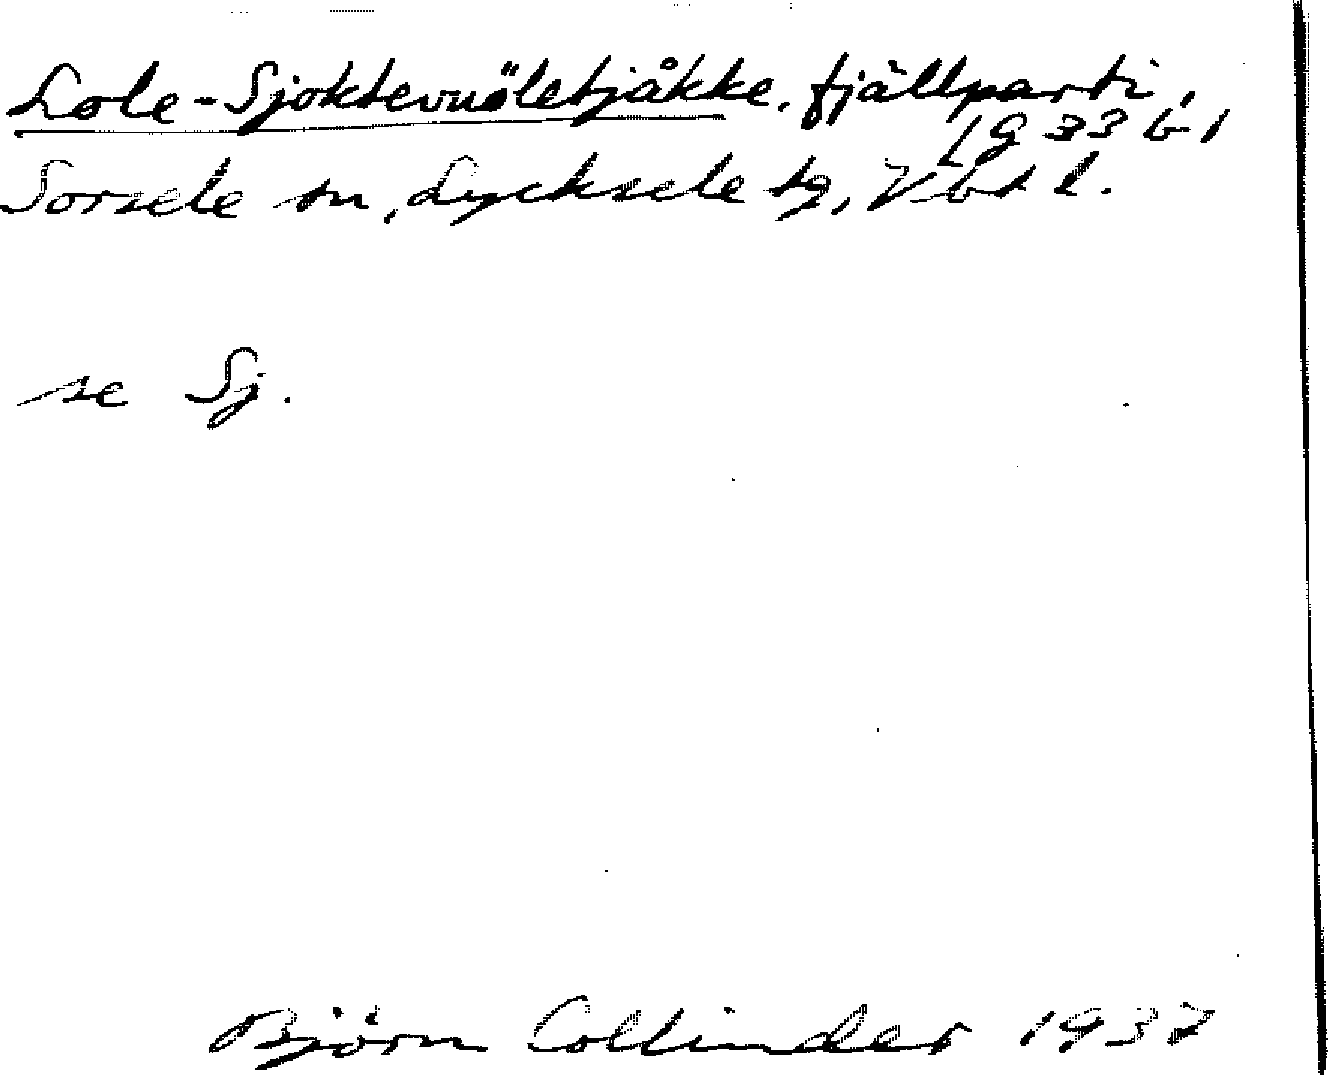 Lole-Sjoktevuöletjåkke, fjällparti,
Lg 33 b 1
Sorsele sn, Lycksele tg, Vbt l.
se Sj.
Björn Collinder 1937